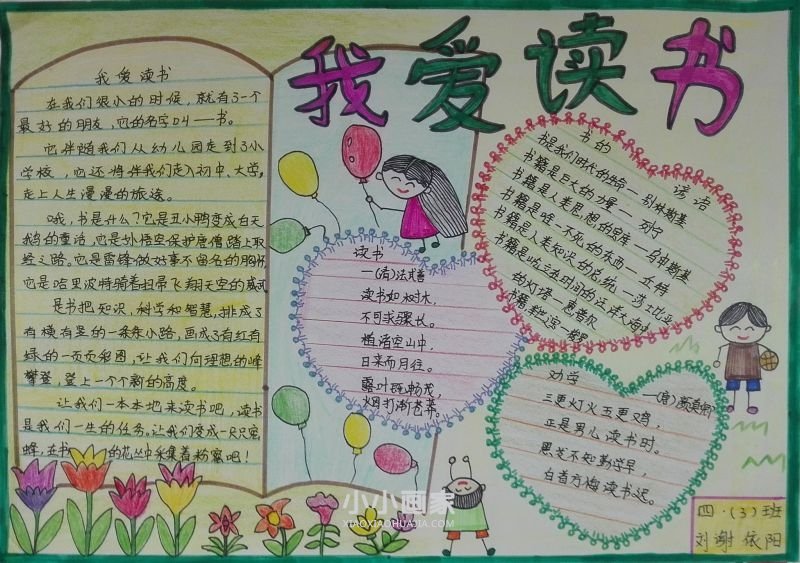 我爱读书
我爱读书
在我们很小的时候,就有了一个
最好的朋友,它的名字叫——书。
它伴随我们从幼儿园走到了小
学校,它还将伴我们走入初中、大学,
走上人生漫漫的旅途。
哦,书是什么?它是丑小鸭变成白天
鹅的童话,它是孙悟空保护唐僧踏上取
经之路。它是雷锋做好事不留名的胸怀
它是哈里波特骑着扫帚飞翔天空的威武
是书把知识,科学和智慧,排成了
有横有竖的一条条小路,画成了有红有
绿的一页页彩图,让我们向理想的峰
攀登,登上一个个新的高度。
让我们一本本地来读书吧,读书
是我们一生的任务。让我们变成一只只蜜
蜂,在书 的花丛中采集着粉蜜吧!
读书
—(有)法式善
读书如树木,
不可求骤长。
植诸空山中,
日来而月往。
露叶既畅茂,
烟打渐苍莽。
书的
谚语
书是我们时代的生命—别林斯基
书籍是巨大的力量—列宁
书籍是人类思想的宝库—乌申斯基
书籍是唯一不死的东西—丘特
书籍是人类知识的总统—莎士比亚
书籍是屹立在时间的汪洋大海中
的灯塔—惠普尔
劝学
三更灯火五更鸡,
正是男儿读书时。
黑发不知勤学早,
白首方悔读书迟。
小小画家
XIAOXIAOHUAJIA.COM
四·(3)班
刘谢依阳